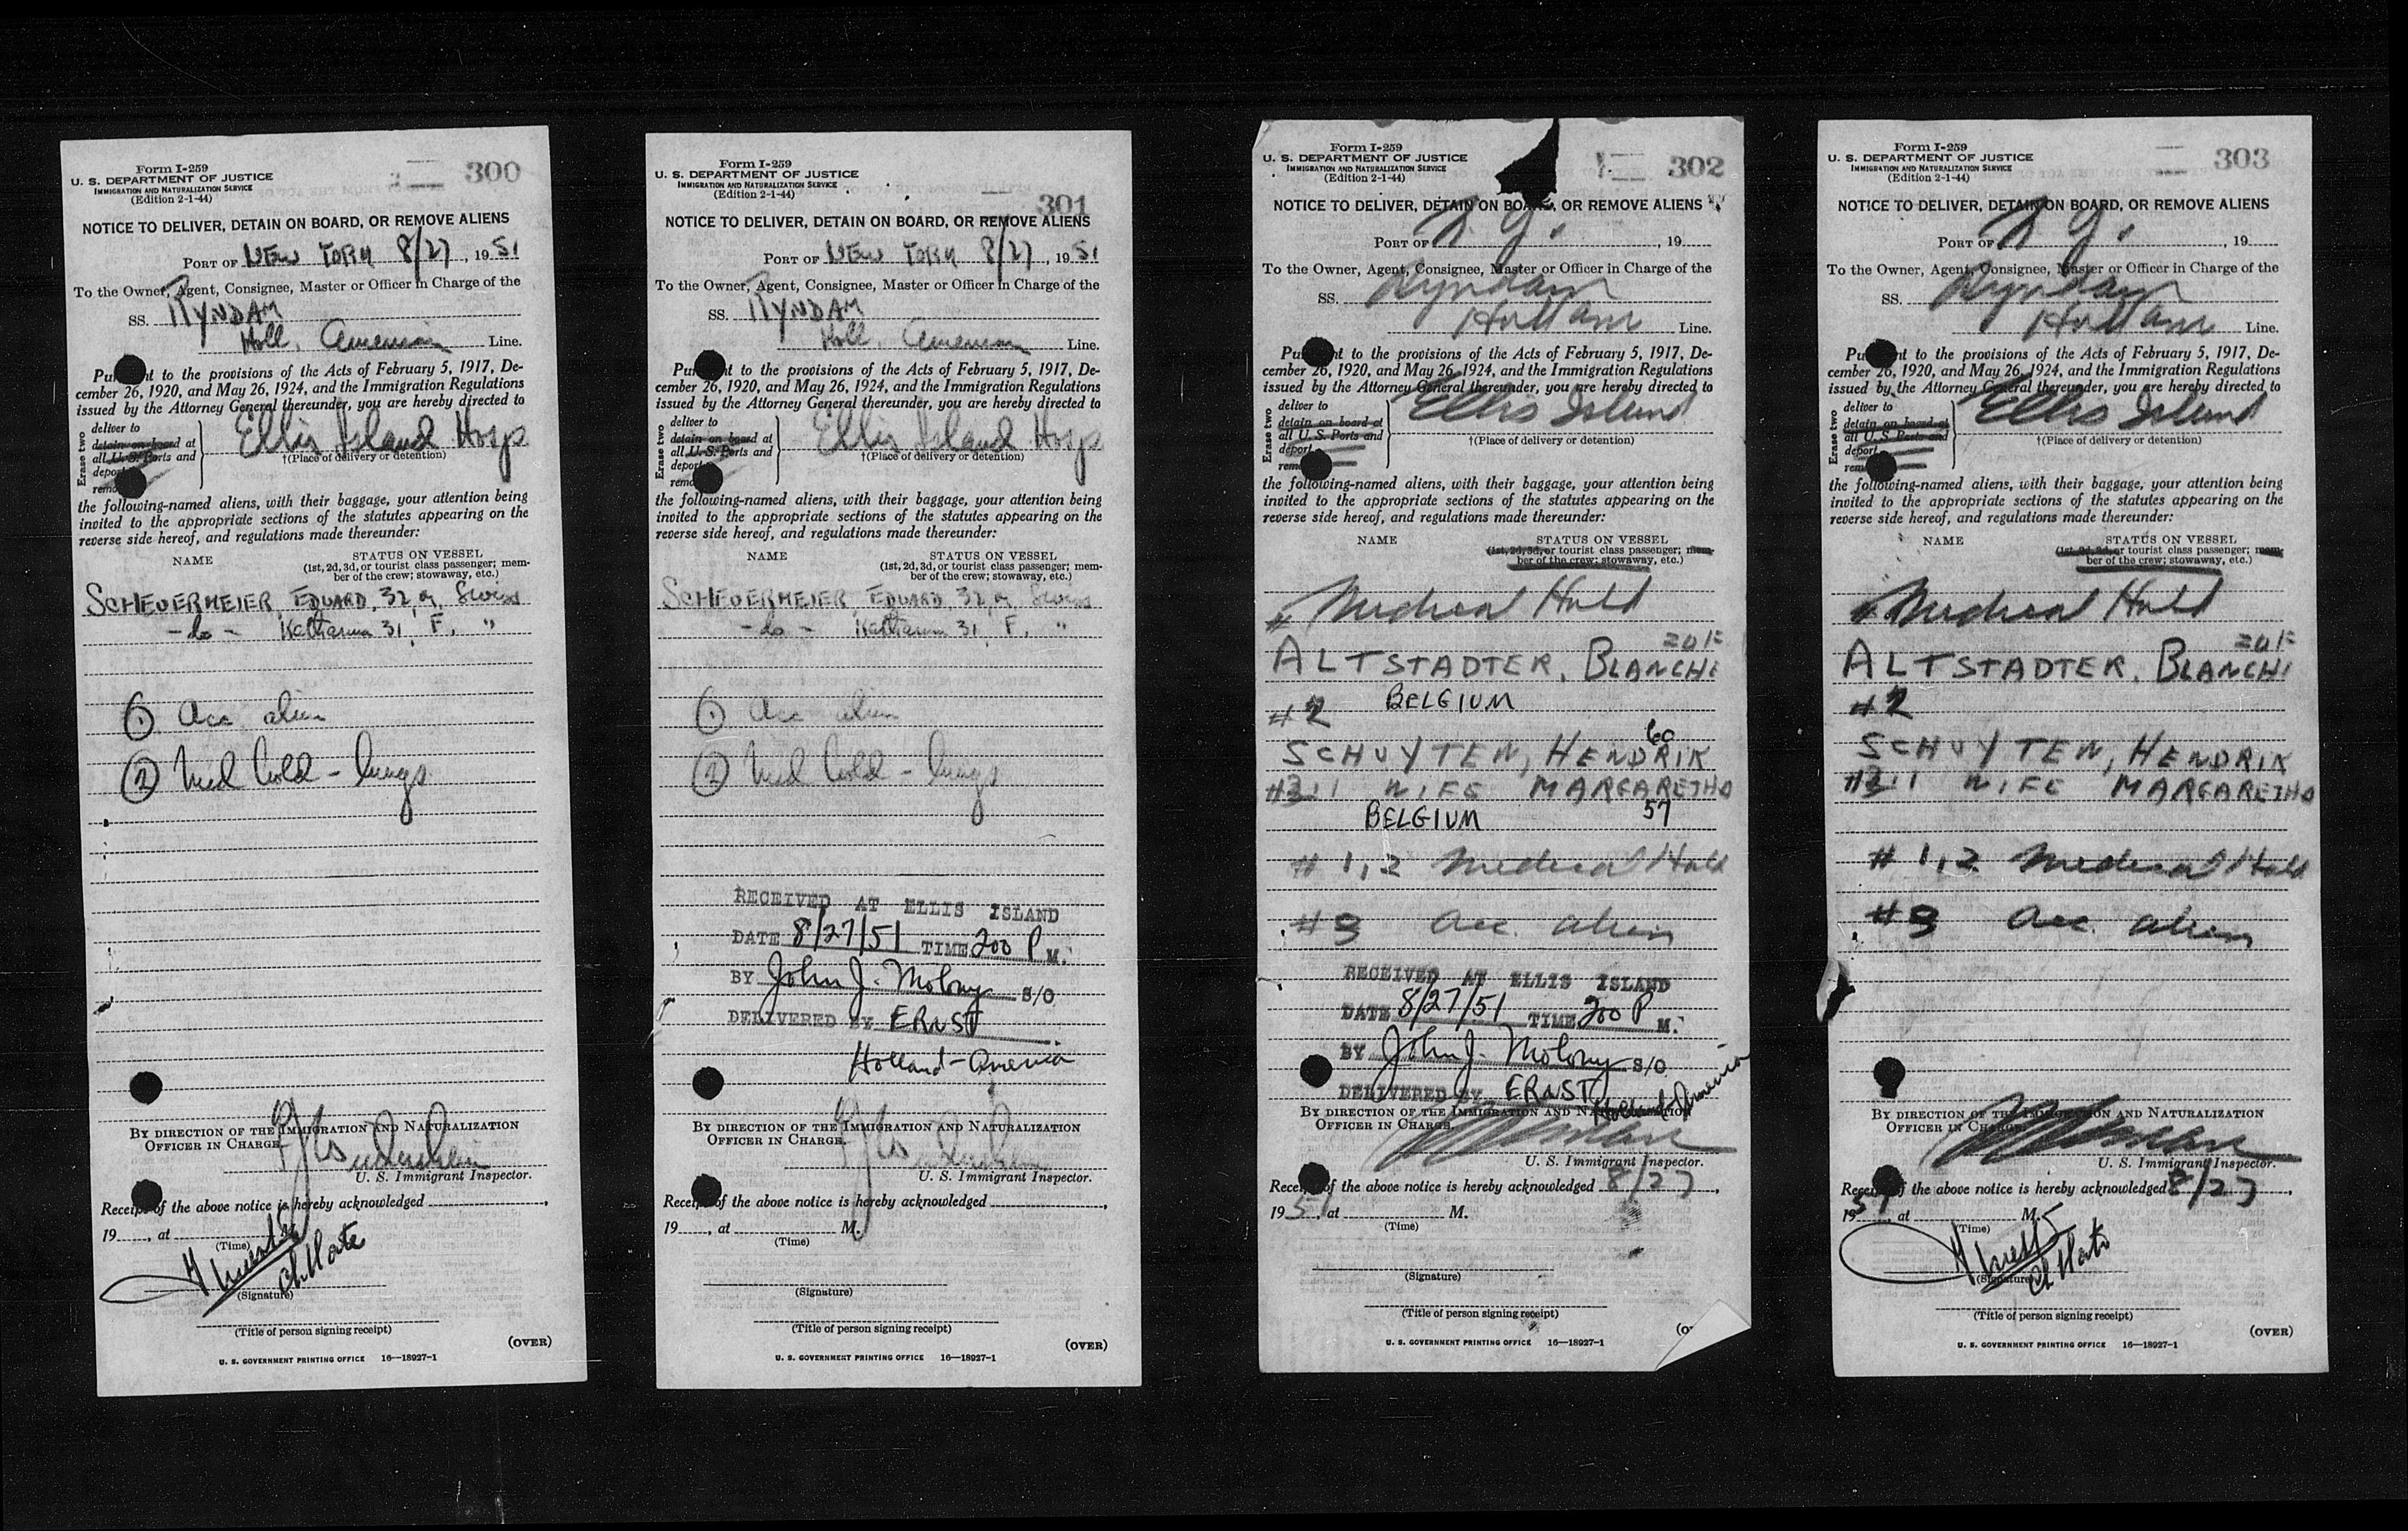 Form I-259
U. S. DEPARTMENT OF JUSTICE
IMMIGRATION AND NATURALIZATION SERVICE
(Edition 2-1-44)
300
NOTICE TO DELIVER, DETAIN ON BOARD, OR REMOVE ALIENS
PORT OF NEW YORK 8/27, 1951
To the Owner, Agent, Consignee, Master or Officer in Charge of the
SS. RYNDAM
Holl. American Line.
Pu nt to the provisions of the Acts of February 5, 1917, De-
cember 26, 1920, and May 26, 1924, and the Immigration Regulations
issued by the Attorney General thereunder, you are hereby directed to
Erase two
deliver to
detain on board at
all U. S. Ports and
deport
remo
Ellis Island Hosp
†(Place of delivery or detention)
the following-named aliens, with their baggage, your attention being
invited to the appropriate sections of the statutes appearing on the
reverse side hereof, and regulations made thereunder:
NAME STATUS ON VESSEL
(1st, 2d, 3d, or tourist class passenger; mem-
ber of the crew; stowaway, etc.)
SCHEUERMEIER EDUARD, 32, m, Swiss
- do - Katharina 31, F. "
① Acc alien
② Med hold - lungs
BY DIRECTION OF THE IMMIGRATION AND NATURALIZATION
OFFICER IN CHARGE.
U. S. Immigrant Inspector.
Receipt of the above notice is hereby acknowledged
19 , at
(Time)
(Signature)
(Title of person signing receipt)
(OVER)
U. S. GOVERNMENT PRINTING OFFICE 16—18927-1
Form I-259
U. S. DEPARTMENT OF JUSTICE
IMMIGRATION AND NATURALIZATION SERVICE
(Edition 2-1-44)
301
NOTICE TO DELIVER, DETAIN ON BOARD, OR REMOVE ALIENS
PORT OF NEW YORK 8/27, 1951
To the Owner, Agent, Consignee, Master or Officer in Charge of the
SS. RYNDAM
Holl. American Line.
Pu nt to the provisions of the Acts of February 5, 1917, De-
cember 26, 1920, and May 26, 1924, and the Immigration Regulations
issued by the Attorney General thereunder, you are hereby directed to
Erase two
deliver to
detain on board at
all U. S. Ports and
deport
remo
Ellis Island Hosp
†(Place of delivery or detention)
the following-named aliens, with their baggage, your attention being
invited to the appropriate sections of the statutes appearing on the
reverse side hereof, and regulations made thereunder:
NAME STATUS ON VESSEL
(1st, 2d, 3d, or tourist class passenger; mem-
ber of the crew; stowaway, etc.)
SCHEUERMEIER EDUARD, 32, m, Swiss
- do - Katharina 31, F. "
① Acc alien
② Med hold - lungs
RECEIVED AT ELLIS ISLAND
DATE 8/27/51 TIME 200 P M.
BY John J. Molony S/O
DELIVERED BY ERNST
Holland-America
BY DIRECTION OF THE IMMIGRATION AND NATURALIZATION
OFFICER IN CHARGE.
U. S. Immigrant Inspector.
Receipt of the above notice is hereby acknowledged
19 , at M.
(Time)
(Signature)
(Title of person signing receipt)
(OVER)
U. S. GOVERNMENT PRINTING OFFICE 16—18927-1
Form I-259
U. S. DEPARTMENT OF JUSTICE
IMMIGRATION AND NATURALIZATION SERVICE
(Edition 2-1-44)
302
NOTICE TO DELIVER, DETAIN ON BOARD, OR REMOVE ALIENS
PORT OF N. Y. , 19
To the Owner, Agent, Consignee, Master or Officer in Charge of the
SS. Ryndam
Holl am Line.
Pu nt to the provisions of the Acts of February 5, 1917, De-
cember 26, 1920, and May 26, 1924, and the Immigration Regulations
issued by the Attorney General thereunder, you are hereby directed to
Erase two
deliver to
detain on board at
all U. S. Ports and
deport
remo
Ellis Island
†(Place of delivery or detention)
the following-named aliens, with their baggage, your attention being
invited to the appropriate sections of the statutes appearing on the
reverse side hereof, and regulations made thereunder:
NAME STATUS ON VESSEL
(1st, 2d, 3d, or tourist class passenger; mem-
ber of the crew; stowaway, etc.)
Medical Hold
ALTSTADTER, BLANCHE
#2 BELGIUM
60
SCHUYTEN, HENDRIK
#3 " WIFE MARGARETHA
BELGIUM 57
# 1,2 Medical Hold
#3 Acc. alien
RECEIVED AT ELLIS ISLAND
DATE 8/27/51 TIME 200 P M.
BY John J. Molony S/O
DELIVERED BY ERNST
Holland-America
BY DIRECTION OF THE IMMIGRATION AND NATURALIZATION
OFFICER IN CHARGE.
U. S. Immigrant Inspector.
Receipt of the above notice is hereby acknowledged 8/27,
1951, at M.
(Time)
(Signature)
(Title of person signing receipt)
U. S. GOVERNMENT PRINTING OFFICE 16—18927-1
Form I-259
U. S. DEPARTMENT OF JUSTICE
IMMIGRATION AND NATURALIZATION SERVICE
(Edition 2-1-44)
303
NOTICE TO DELIVER, DETAIN ON BOARD, OR REMOVE ALIENS
PORT OF N. Y. , 19
To the Owner, Agent, Consignee, Master or Officer in Charge of the
SS. Ryndam
Holl am Line.
Pu nt to the provisions of the Acts of February 5, 1917, De-
cember 26, 1920, and May 26, 1924, and the Immigration Regulations
issued by the Attorney General thereunder, you are hereby directed to
Erase two
deliver to
detain on board at
all U. S. Ports and
deport
rem
Ellis Island
†(Place of delivery or detention)
the following-named aliens, with their baggage, your attention being
invited to the appropriate sections of the statutes appearing on the
reverse side hereof, and regulations made thereunder:
NAME STATUS ON VESSEL
(1st, 2d, 3d, or tourist class passenger; mem-
ber of the crew; stowaway, etc.)
Medical Hold
ALTSTADTER, BLANCHE
#2
SCHUYTEN, HENDRIK
#3 " WIFE MARGARETHA
# 1,2 Medical Hold
#3 Acc. alien
BY DIRECTION OF THE IMMIGRATION AND NATURALIZATION
OFFICER IN CHARGE.
U. S. Immigrant Inspector.
Receipt of the above notice is hereby acknowledged 8/27,
1951, at M.
(Time)
(Signature)
(Title of person signing receipt)
(OVER)
U. S. GOVERNMENT PRINTING OFFICE 16—18927-1